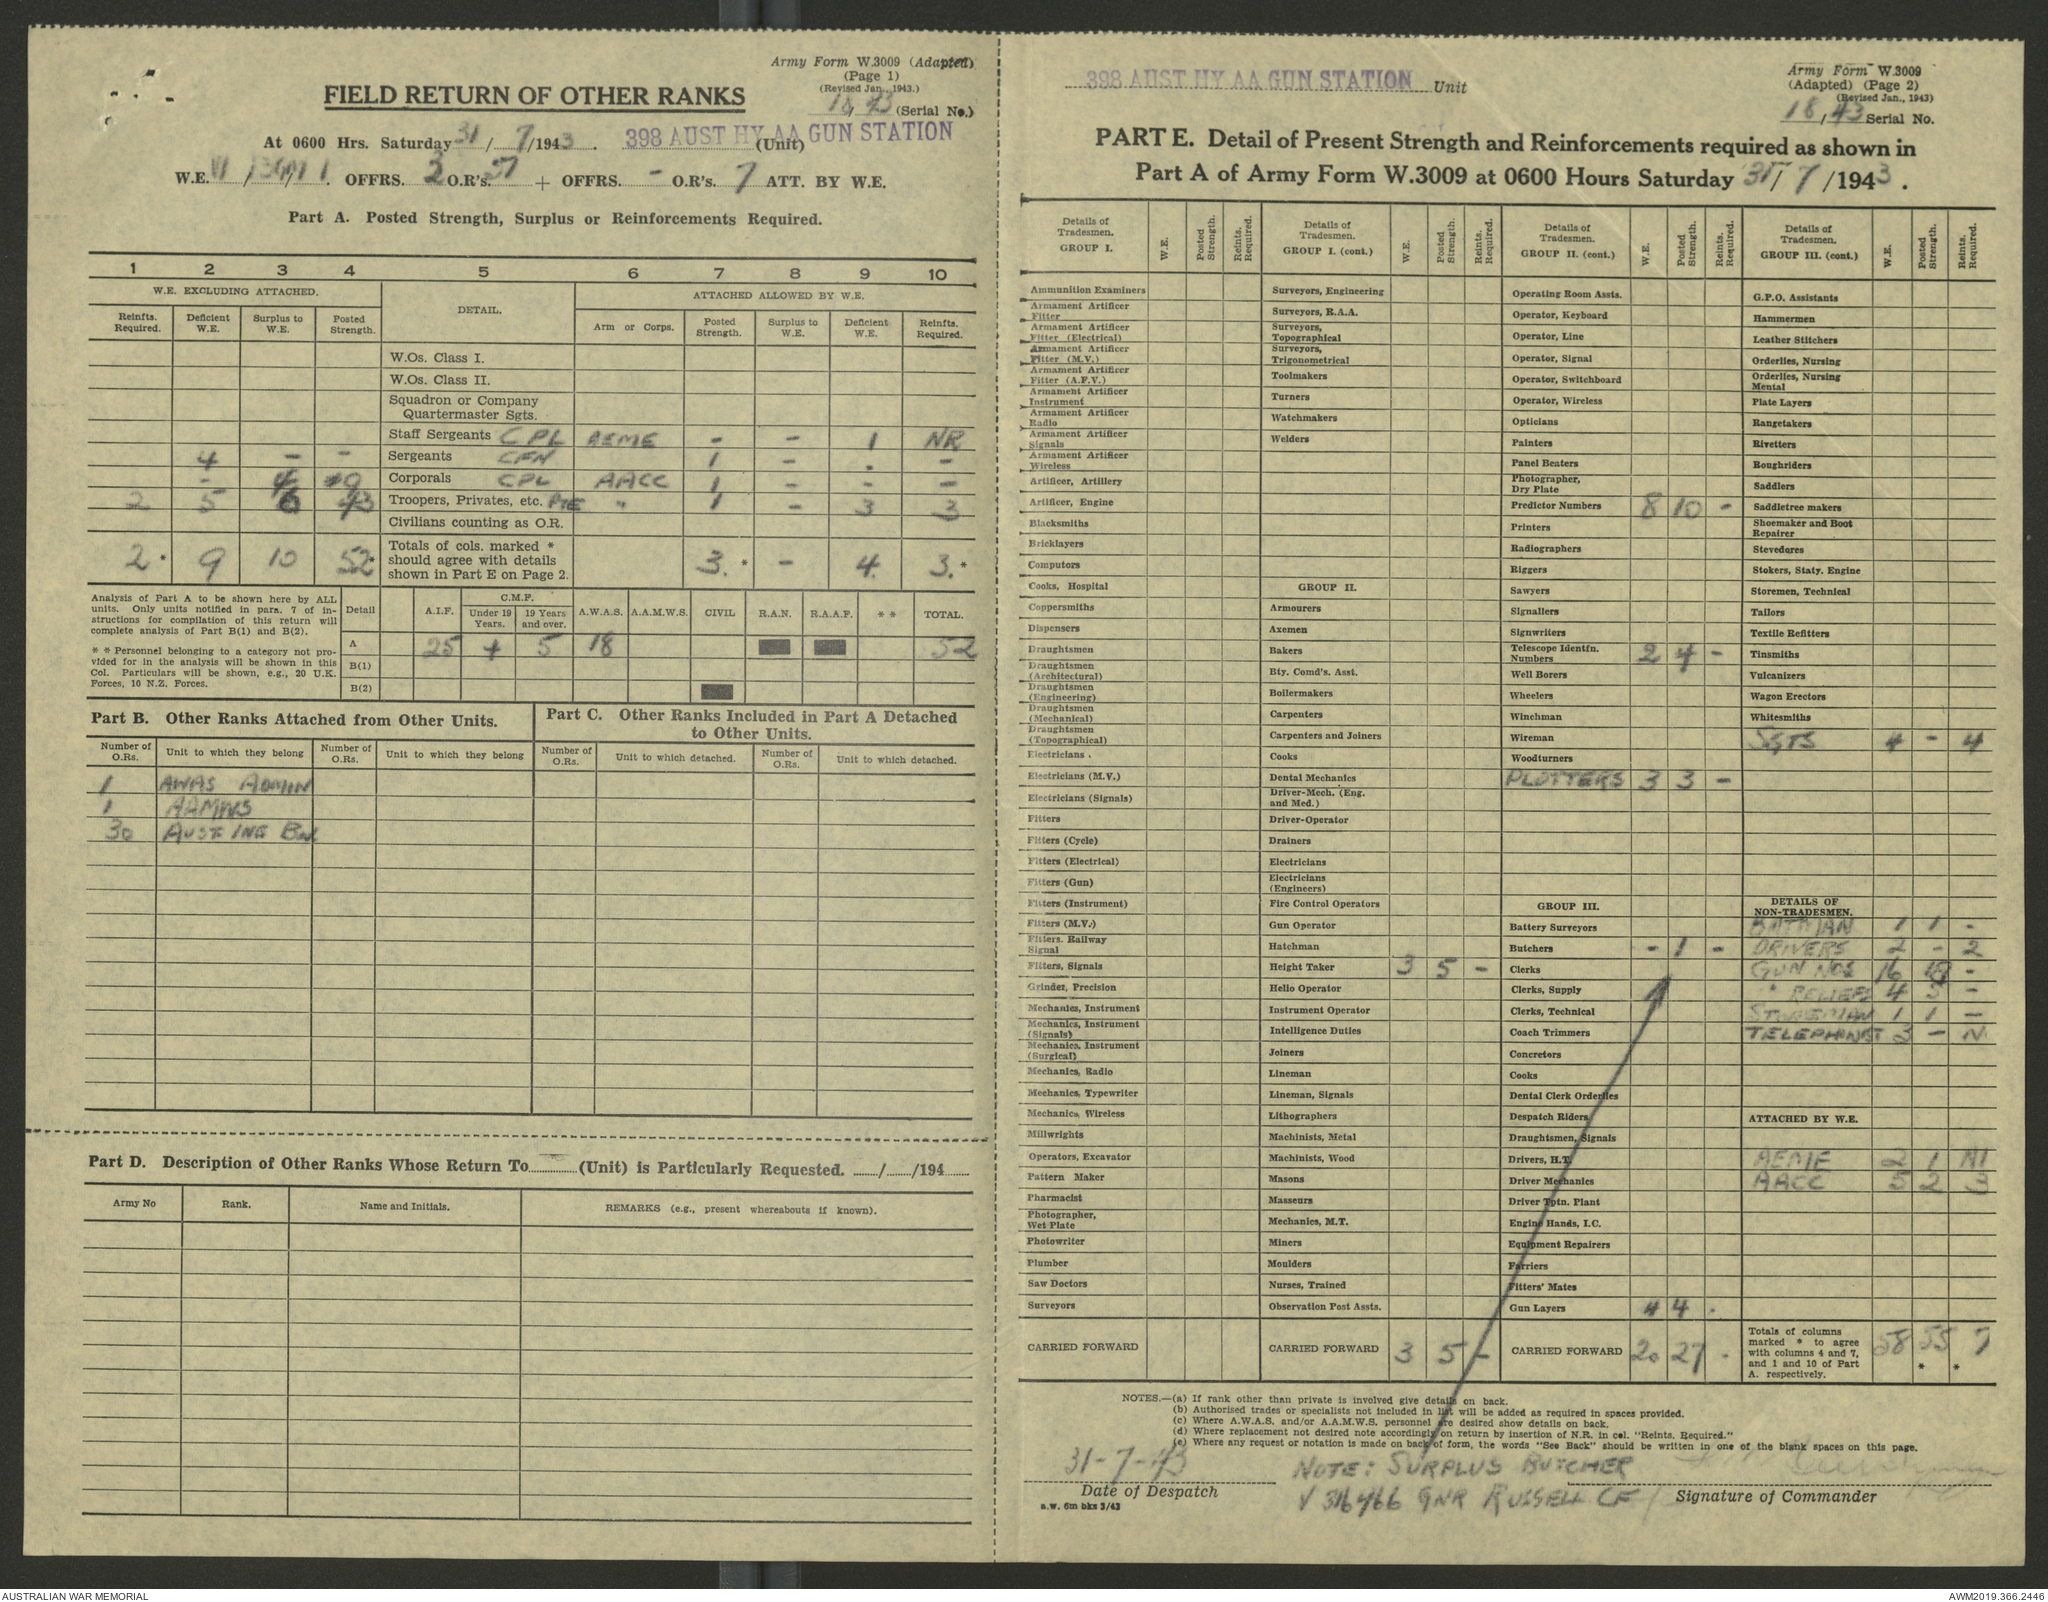 Army Form W.3009 (Adapted)
(Page 1)
(Revised Jan., 1943.)
FIELD RETURN OF OTHER RANKS
18/43 (Serial No.)
At 0600 Hrs. Saturday 31/7/1943. 398 AUST HY AA GUN STATION (Unit)
W.E. OFFRS. 2 O.R's. + OFFRS. - O.R's. 7 ATT. BY W.E.
Part A. Posted Strength, Surplus or Reinforcements Required.
1 2 3 4 5 6 7 8 9 10
W.E. EXCLUDING ATTACHED. DETAIL. ATTACHED ALLOWED BY W.E.
Reinfts. Required. Deficient W.E. Surplus to W.E. Posted Strength. Arm or Corps. Posted Strength. Surplus to W.E. Deficient W.E. Reinfts. Required.
W.Os. Class I.
W.Os. Class II.
Squadron or Company
Quartermaster Sgts.
Staff Sergeants CPL AEME - - 1 NR
4 - - Sergeants CFN 1 - . -
- 4 9 Corporals CPL AACC 1 - - -
2 5 6 43 Troopers, Privates, etc. PTE " 1 - 3 3
Civilians counting as O.R.
2* 9 10 52* Totals of cols. marked * should agree with details shown in Part E on Page 2. 3.* - 4. 3.*
Analysis of Part A to be shown here by ALL
units. Only units notified in para. 7 of in-
structions for compilation of this return will
complete analysis of Part B(1) and B(2).
* * Personnel belonging to a category not pro-
vided for in the analysis will be shown in this
Col. Particulars will be shown, e.g., 20 U.K.
Forces, 10 N.Z. Forces.
Detail A.I.F. C.M.F. Under 19 Years. 19 Years and over. A.W.A.S. A.A.M.W.S. CIVIL R.A.N. R.A.A.F. * * TOTAL.
A 25 4 5 18 52
B(1)
B(2)
Part B. Other Ranks Attached from Other Units.
Part C. Other Ranks Included in Part A Detached
to Other Units.
Number of O.Rs. Unit to which they belong Number of O.Rs. Unit to which they belong Number of O.Rs. Unit to which detached. Number of O.Rs. Unit to which detached.
1 AWAS ADMIN
1 AAMWS
30 AUST INF BN
Part D. Description of Other Ranks Whose Return To (Unit) is Particularly Requested. / /194
Army No Rank. Name and Initials. REMARKS (e.g., present whereabouts if known).
398 AUST HY AA GUN STATION Unit
Army Form W.3009
(Adapted) (Page 2)
(Revised Jan., 1943)
18/43 Serial No.
PART E. Detail of Present Strength and Reinforcements required as shown in
Part A of Army Form W.3009 at 0600 Hours Saturday 31/7/1943.
Details of Tradesmen. GROUP I. W.E. Posted Strength. Reints. Required.
Ammunition Examiners
Armament Artificer Fitter
Armament Artificer Fitter (Electrical)
Armament Artificer Fitter (M.V.)
Armament Artificer Fitter (A.F.V.)
Armament Artificer Instrument
Armament Artificer Radio
Armament Artificer Signals
Armament Artificer Wireless
Artificer, Artillery
Artificer, Engine
Blacksmiths
Bricklayers
Computors
Cooks, Hospital
Coppersmiths
Dispensers
Draughtsmen
Draughtsmen (Architectural)
Draughtsmen (Engineering)
Draughtsmen (Mechanical)
Draughtsmen (Topographical)
Electricians
Electricians (M.V.)
Electricians (Signals)
Fitters
Fitters (Cycle)
Fitters (Electrical)
Fitters (Gun)
Fitters (Instrument)
Fitters (M.V.)
Fitters, Railway Signal
Fitters, Signals
Grinder, Precision
Mechanics, Instrument
Mechanics, Instrument (Signals)
Mechanics, Instrument (Surgical)
Mechanics, Radio
Mechanics, Typewriter
Mechanics, Wireless
Millwrights
Operators, Excavator
Pattern Maker
Pharmacist
Photographer, Wet Plate
Photowriter
Plumber
Saw Doctors
Surveyors
CARRIED FORWARD
Details of Tradesmen. GROUP I. (cont.) W.E. Posted Strength. Reints. Required.
Surveyors, Engineering
Surveyors, R.A.A.
Surveyors, Topographical
Surveyors, Trigonometrical
Toolmakers
Turners
Watchmakers
Welders
GROUP II.
Armourers
Axemen
Bakers
Bty. Comd's. Asst.
Boilermakers
Carpenters
Carpenters and Joiners
Cooks
Dental Mechanics
Driver-Mech. (Eng. and Med.)
Driver-Operator
Drainers
Electricians
Electricians (Engineers)
Fire Control Operators
Gun Operator
Hatchman
Height Taker 3 5 -
Hello Operator
Instrument Operator
Intelligence Duties
Joiners
Lineman
Lineman, Signals
Lithographers
Machinists, Metal
Machinists, Wood
Masons
Masseurs
Mechanics, M.T.
Miners
Moulders
Nurses, Trained
Observation Post Assts.
CARRIED FORWARD 3 5 -
Details of Tradesmen. GROUP II. (cont.) W.E. Posted Strength. Reints. Required.
Operating Room Assts.
Operator, Keyboard
Operator, Line
Operator, Signal
Operator, Switchboard
Operator, Wireless
Opticians
Painters
Panel Beaters
Photographer, Dry Plate
Predictor Numbers 8 10 -
Printers
Radiographers
Riggers
Sawyers
Signallers
Signwriters
Telescope Identfn. Numbers 2 4 -
Well Borers
Wheelers
Winchman
Wireman
Woodturners
PLOTTERS 3 3 -
GROUP III.
Battery Surveyors
Butchers - 1 -
Clerks
Clerks, Supply
Clerks, Technical
Coach Trimmers
Concretors
Cooks
Dental Clerk Orderlies
Despatch Riders
Draughtsmen, Signals
Drivers, H.T.
Driver Mechanics
Driver Tptn. Plant
Engine Hands, I.C.
Equipment Repairers
Farriers
Fitters' Mates
Gun Layers 4 4 -
CARRIED FORWARD 20 27 -
Details of Tradesmen. GROUP III. (cont.) W.E. Posted Strength. Reints. Required.
G.P.O. Assistants
Hammermen
Leather Stitchers
Orderlies, Nursing
Orderlies, Nursing Mental
Plate Layers
Rangetakers
Rivetters
Roughriders
Saddlers
Saddletree makers
Shoemaker and Boot Repairer
Stevedores
Stokers, Staty. Engine
Storemen, Technical
Tailors
Textile Refitters
Tinsmiths
Vulcanizers
Wagon Erectors
Whitesmiths
SGTS 4 - 4
DETAILS OF NON-TRADESMEN.
BATMAN 1 1 -
DRIVERS 2 - 2
GUN NOS 16 -
" RELIEFS 4 3 -
STOREMAN 1 1 -
TELEPHONIST 3 - N
ATTACHED BY W.E.
AEME 2 1 N1
AACC 5 2 3
Totals of columns marked * to agree with columns 4 and 7, and 1 and 10 of Part A. respectively. 58 55* 7*
NOTES.—(a) If rank other than private is involved give details on back.
(b) Authorised trades or specialists not included in list will be added as required in spaces provided.
(c) Where A.W.A.S. and/or A.A.M.W.S. personnel are desired show details on back.
(d) Where replacement not desired note accordingly on return by insertion of N.R. in col. "Reints. Required."
(e) Where any request or notation is made on back of form, the words "See Back" should be written in one of the blank spaces on this page.
31-7-43
Date of Despatch
a.w. 6m bks 3/43
NOTE: SURPLUS BUTCHER
V 316466 GNR RUSSELL CF
Signature of Commander
AUSTRALIAN WAR MEMORIAL
AWM2019.366.2446